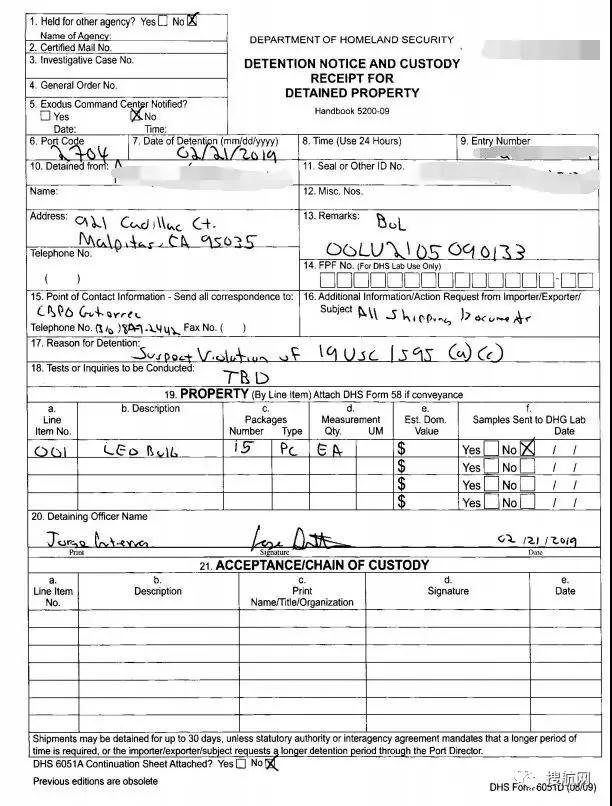 1. Held for other agency? Yes ☐ No ☒
Name of Agency:
2. Certified Mail No.
3. Investigative Case No.
4. General Order No.
5. Exodus Command Center Notified?
☐ Yes ☒ No
Date: Time:
DEPARTMENT OF HOMELAND SECURITY
DETENTION NOTICE AND CUSTODY
RECEIPT FOR
DETAINED PROPERTY
Handbook 5200-09
6. Port Code 7. Date of Detention (mm/dd/yyyy) 8. Time (Use 24 Hours) 9. Entry Number
2704 02/21/2019
10. Detained from: 11. Seal or Other ID No.
Name: 12. Misc. Nos.
Address: 921 Cadillac Ct. 13. Remarks: BOL
Malpitas, CA 95035 OOLU2105090133
Telephone No. 14. FPF No. (For DHS Lab Use Only)
( )
15. Point of Contact Information - Send all correspondence to: 16. Additional Information/Action Request from Importer/Exporter/
CBPO Subject All Shipping Documents
Telephone No. (310) Fax No. ( )
17. Reason for Detention:
Suspect Violation of 19 USC 1595 (a)(c)
18. Tests or Inquiries to be Conducted:
TBD
19. PROPERTY (By Line Item) Attach DHS Form 58 if conveyance
a. b. Description c. d. e. f.
Line Packages Measurement Est. Dom. Samples Sent to DHG Lab
Item No. Number Type Qty. UM Value Date
001 LED Bulb 15 PC EA $ Yes ☐ No ☒ / /
$ Yes ☐ No ☐ / /
$ Yes ☐ No ☐ / /
$ Yes ☐ No ☐ / /
20. Detaining Officer Name
02/21/2019
Print Signature Date
21. ACCEPTANCE/CHAIN OF CUSTODY
a. b. c. d. e.
Line Item Description Print Signature Date
No. Name/Title/Organization
Shipments may be detained for up to 30 days, unless statutory authority or interagency agreement mandates that a longer period of
time is required, or the importer/exporter/subject requests a longer detention period through the Port Director.
DHS 6051A Continuation Sheet Attached? Yes ☐ No ☒
Previous editions are obsolete
DHS Form 6051D (08/09)
搜航网